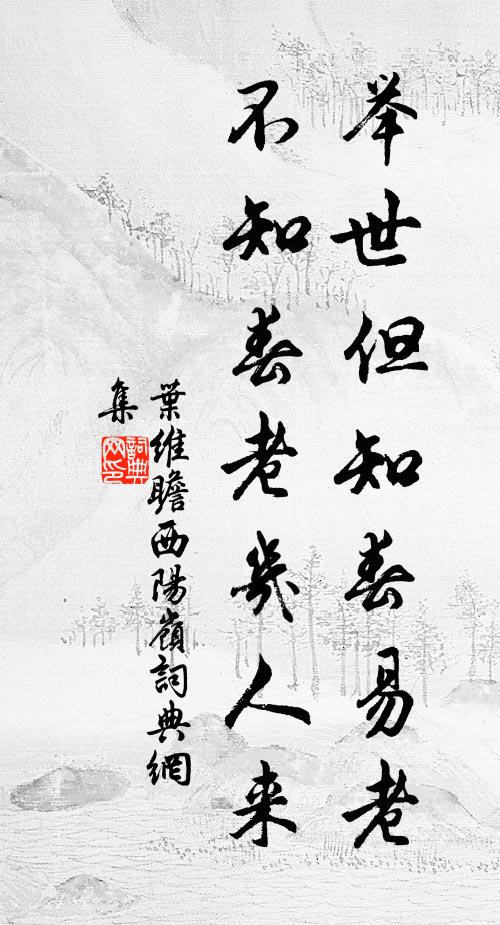 举世但知春易老
不知春老几人来
葉維瞻西陽嶺詞典網
集
詞典网印